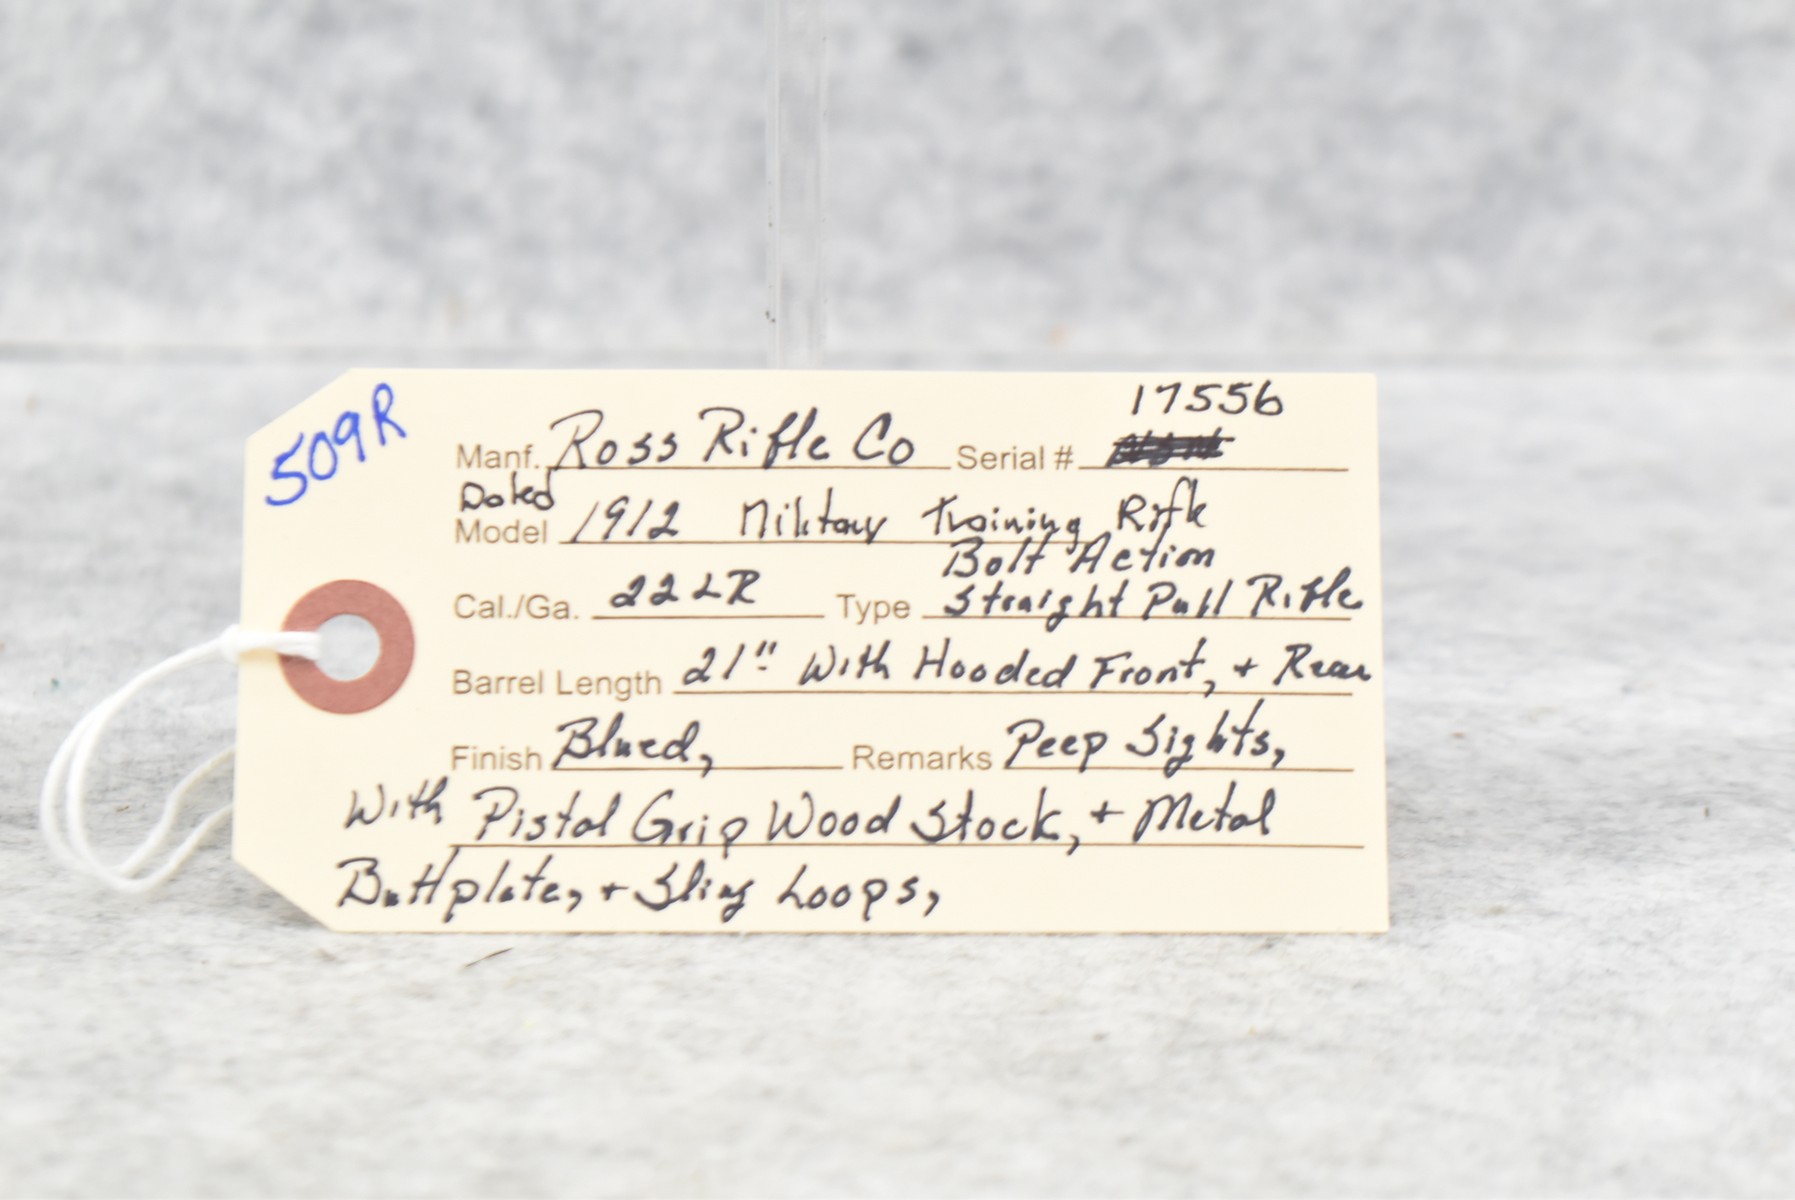 509R
17556
Manf. Ross Rifle Co Serial #
Dated
Model 1912 Military Training Rifle
Bolt Action
Cal./Ga. 22LR Type Straight Pull Rifle
Barrel Length 21" With Hooded Front, + Rear
Finish Blued, Remarks Peep Sights,
With Pistol Grip Wood Stock, + Metal
Buttplate, + Sling Loops,